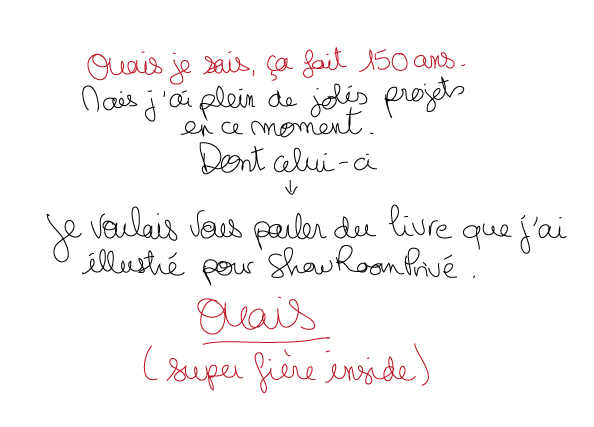 Ouais je sais, ça fait 150 ans.
Mais j'ai plein de jolis projets
en ce moment.
Dont celui-ci
↓
Je voulais vous parler du livre que j'ai
illustré pour ShowRoomPrivé.
Ouais
(super fière inside)